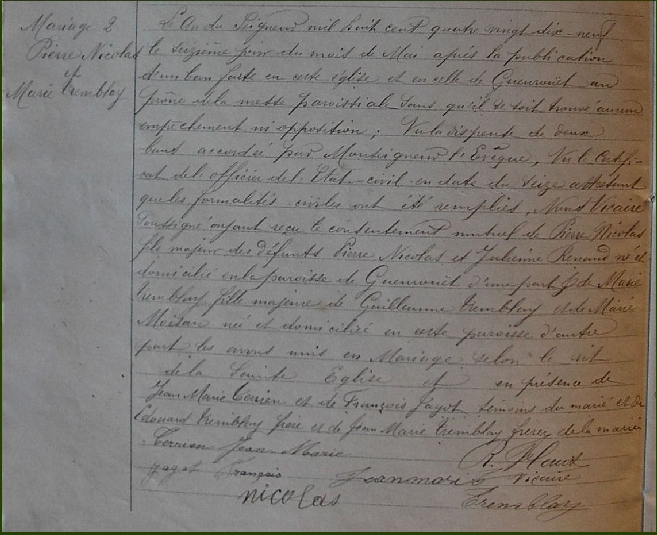 Mariage 2
Pierre Nicolas
et
Marie Tremblay
L'An du Seigneur mil huit cent quatre vingt dix-neuf
le seizième jour du mois de Mai après la publication
d'un ban faite en cette église et en celle de Guenrouët au
prône de la messe paroissiale sans qu'il se soit trouvé aucun
empêchement ni opposition; Vu la dispense de deux
bans accordée par Monseigneur l'Evêque, Vu le Certifi-
cat de l'officier de l'Etat-civil en date du seize attestant
que les formalités civiles ont été remplies, Nous Vicaire
soussigné ayant reçu le consentement mutuel de Pierre Nicolas
fils majeur des défunts Pierre Nicolas et Julienne Renaud né et
domicilié en la paroisse de Guenrouët d'une part & de Marie
Tremblay fille majeure de Guillaume Tremblay et de Marie
née et domiciliée en cette paroisse d'autre
part les avons unis en Mariage selon le rit
de la Sainte Eglise et en présence de
Jean Marie Terrien et de François témoins du marié et de
Edouard Tremblay frère et de Jean Marie Tremblay frères de la mariée
Terrien Jean-Marie
François Jeanmarie Vicaire
nicolas Tremblay